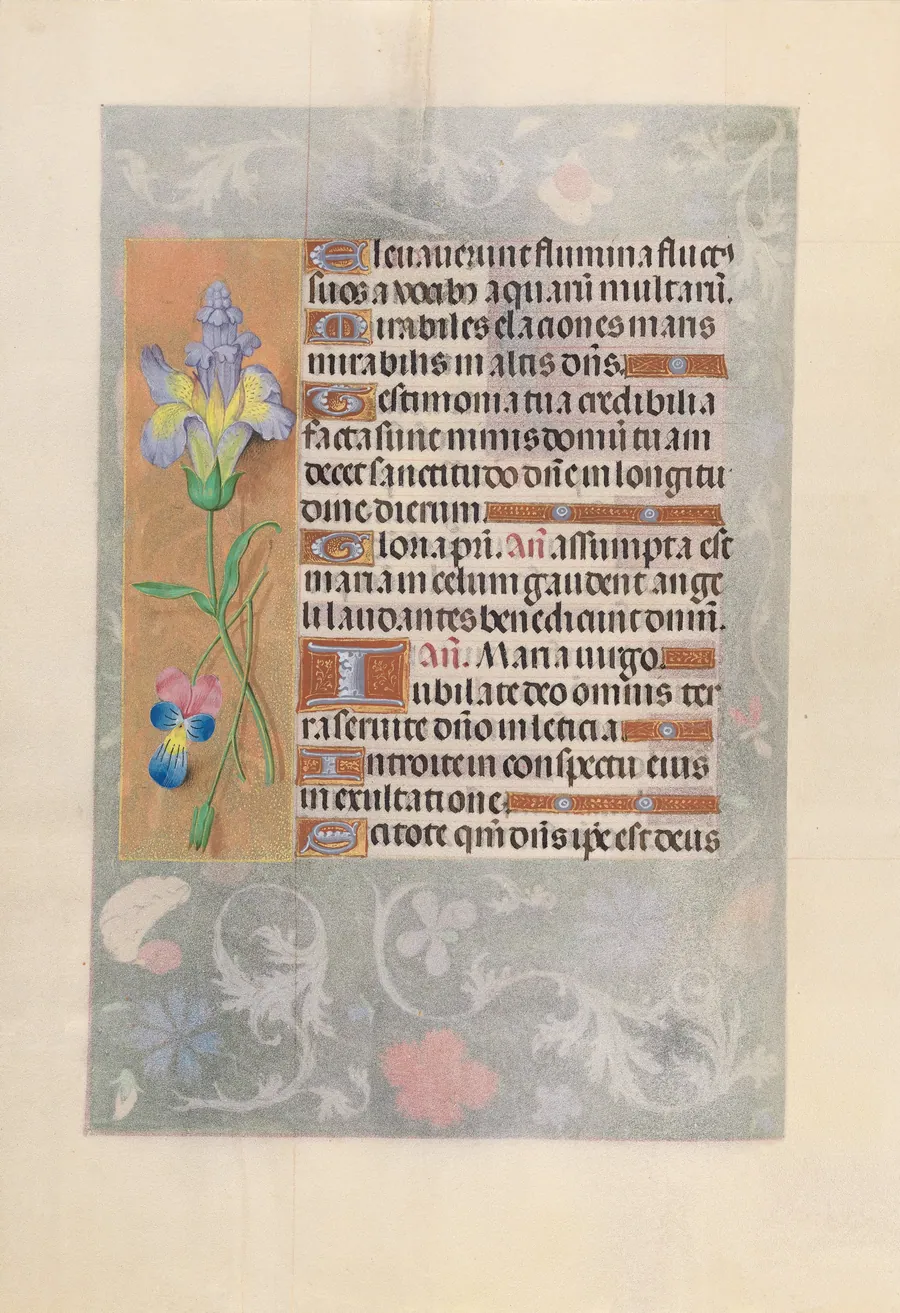 Eleuauerunt flumina fluctꝰ
suos a vocibꝫ aquarū multarū.
Mirabiles elaciones maris
mirabilis in altis dn̄s.
Testimonia tua credibilia
facta sunt nimis domū tuam
decet sanctitudo dn̄e in longitu
dine dierum
Gloria pr̄i. An̄ assumpta est
maria in celum gaudent ange
li laudantes benedicunt dominū.
An̄. Maria uirgo.
Iubilate deo omnis ter
ra seruite dn̄o in leticia.
Introite in conspectu eius
in exultatione
Scitote qm̄ dn̄s ip̄e est deus